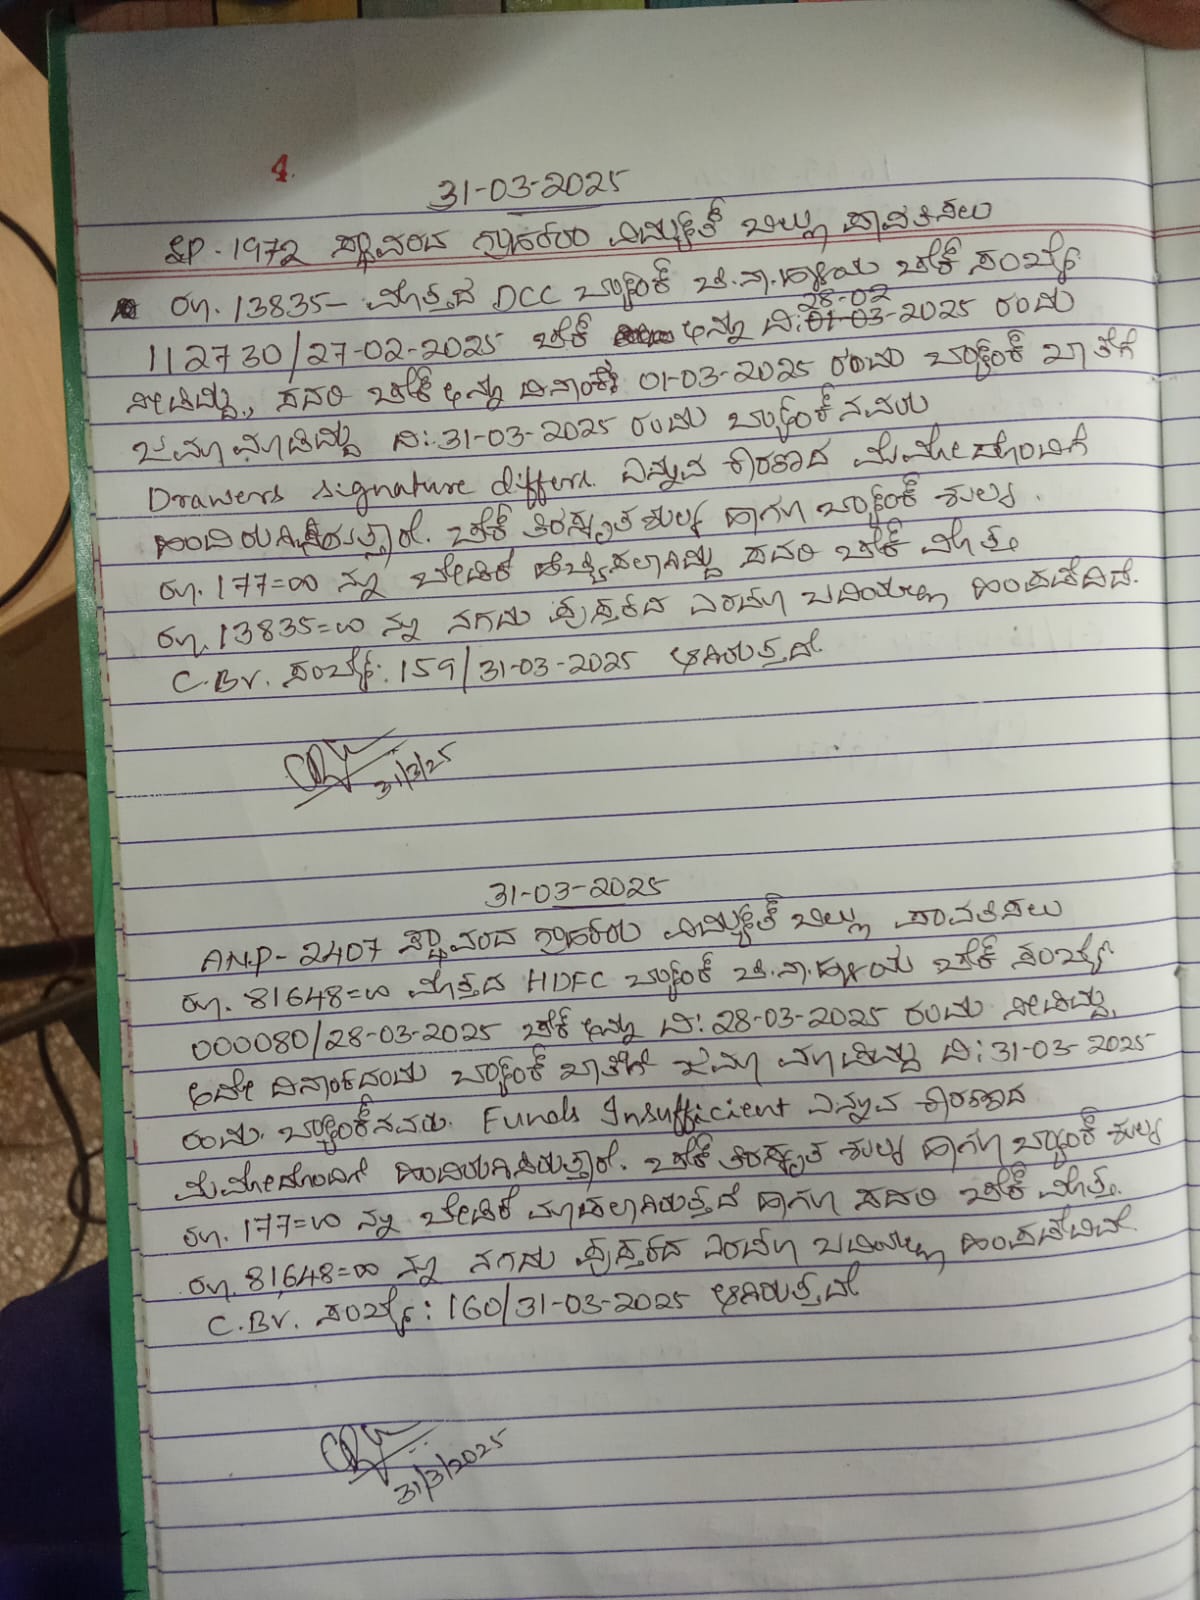 4.
31-03-2025
SP-1972 ಸ್ಥಾವರದ ಗ್ರಾಹಕರು ವಿದ್ಯುತ್ ಬಿಲ್ಲು ಪಾವತಿಸಲು
ರೂ. 13835- ಮೊತ್ತದ DCC ಬ್ಯಾಂಕ್ ಚೆಕ್ ಸಂಖ್ಯೆ
28-02
112730/27-02-2025 ಚೆಕ್ ಅನ್ನು ದಿ: 01-03-2025 ರಂದು
ನೀಡಿದ್ದು, ಸದರಿ ಚೆಕ್ ಅನ್ನು ದಿನಾಂಕ: 01-03-2025 ರಂದು ಬ್ಯಾಂಕ್ ಖಾತೆಗೆ
ಜಮಾ ಮಾಡಿದ್ದು ದಿ: 31-03-2025 ರಂದು ಬ್ಯಾಂಕ್‌ನವರು
Drawers signature differs. ಎನ್ನುವ ಕಾರಣದ ಮೆಮೋದೊಂದಿಗೆ
ಹಿಂದಿರುಗಿಸಿರುತ್ತಾರೆ. ಚೆಕ್ ತಿರಸ್ಕೃತ ಶುಲ್ಕ ಹಾಗೂ ಬ್ಯಾಂಕ್ ಶುಲ್ಕ
ರೂ. 177=00 ನ್ನು ಬೇಡಿಕೆ ಸದರಿ ಚೆಕ್ ಮೊತ್ತ
ರೂ. 13835=00 ನ್ನು ನಗದು ಪುಸ್ತಕದ ಎರಡೂ ಬದಿಯಲ್ಲಿ ಹಿಂಪಡೆದಿದೆ.
C.Br. ಸಂಖ್ಯೆ: 159/31-03-2025 ಆಗಿರುತ್ತದೆ.
31/3/25
31-03-2025
ANP-2407 ಸ್ಥಾವರದ ಗ್ರಾಹಕರು ವಿದ್ಯುತ್ ಬಿಲ್ಲು ಪಾವತಿಸಲು
ರೂ. 81648=00 ಮೊತ್ತದ HDFC ಬ್ಯಾಂಕ್ ಚೆಕ್ ಸಂಖ್ಯೆ
000080/28-03-2025 ಚೆಕ್ ಅನ್ನು ದಿ: 28-03-2025 ರಂದು ನೀಡಿದ್ದು,
ಅದೇ ದಿನಾಂಕದಂದು ಬ್ಯಾಂಕ್ ಖಾತೆಗೆ ಜಮಾ ಮಾಡಿದ್ದು ದಿ: 31-03-2025
ರಂದು ಬ್ಯಾಂಕ್‌ನವರು Funds Insufficient ಎನ್ನುವ ಕಾರಣದ
ಮೆಮೋದೊಂದಿಗೆ ಹಿಂದಿರುಗಿಸಿರುತ್ತಾರೆ. ಚೆಕ್ ತಿರಸ್ಕೃತ ಶುಲ್ಕ ಹಾಗೂ ಬ್ಯಾಂಕ್ ಶುಲ್ಕ
ರೂ. 177=00 ನ್ನು ಬೇಡಿಕೆ ಮಾಡಲಾಗಿರುತ್ತದೆ ಹಾಗೂ ಸದರಿ ಚೆಕ್ ಮೊತ್ತ
ರೂ. 81,648=00 ನ್ನು ನಗದು ಪುಸ್ತಕದ ಎರಡೂ ಬದಿಯಲ್ಲಿ ಹಿಂಪಡೆದಿದೆ.
C.Br. ಸಂಖ್ಯೆ: 160/31-03-2025 ಆಗಿರುತ್ತದೆ
31/3/2025